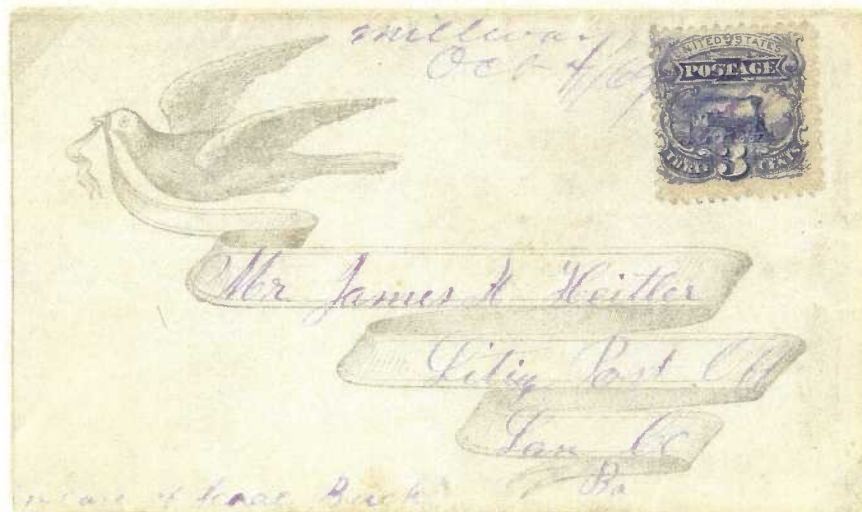 Millway
Oct 4/69
UNITED STATES
POSTAGE
THREE 3 CENTS
Mr James H Heitler
Litiz Post Off
Lan Co
Pa
in care of Isaac Buch